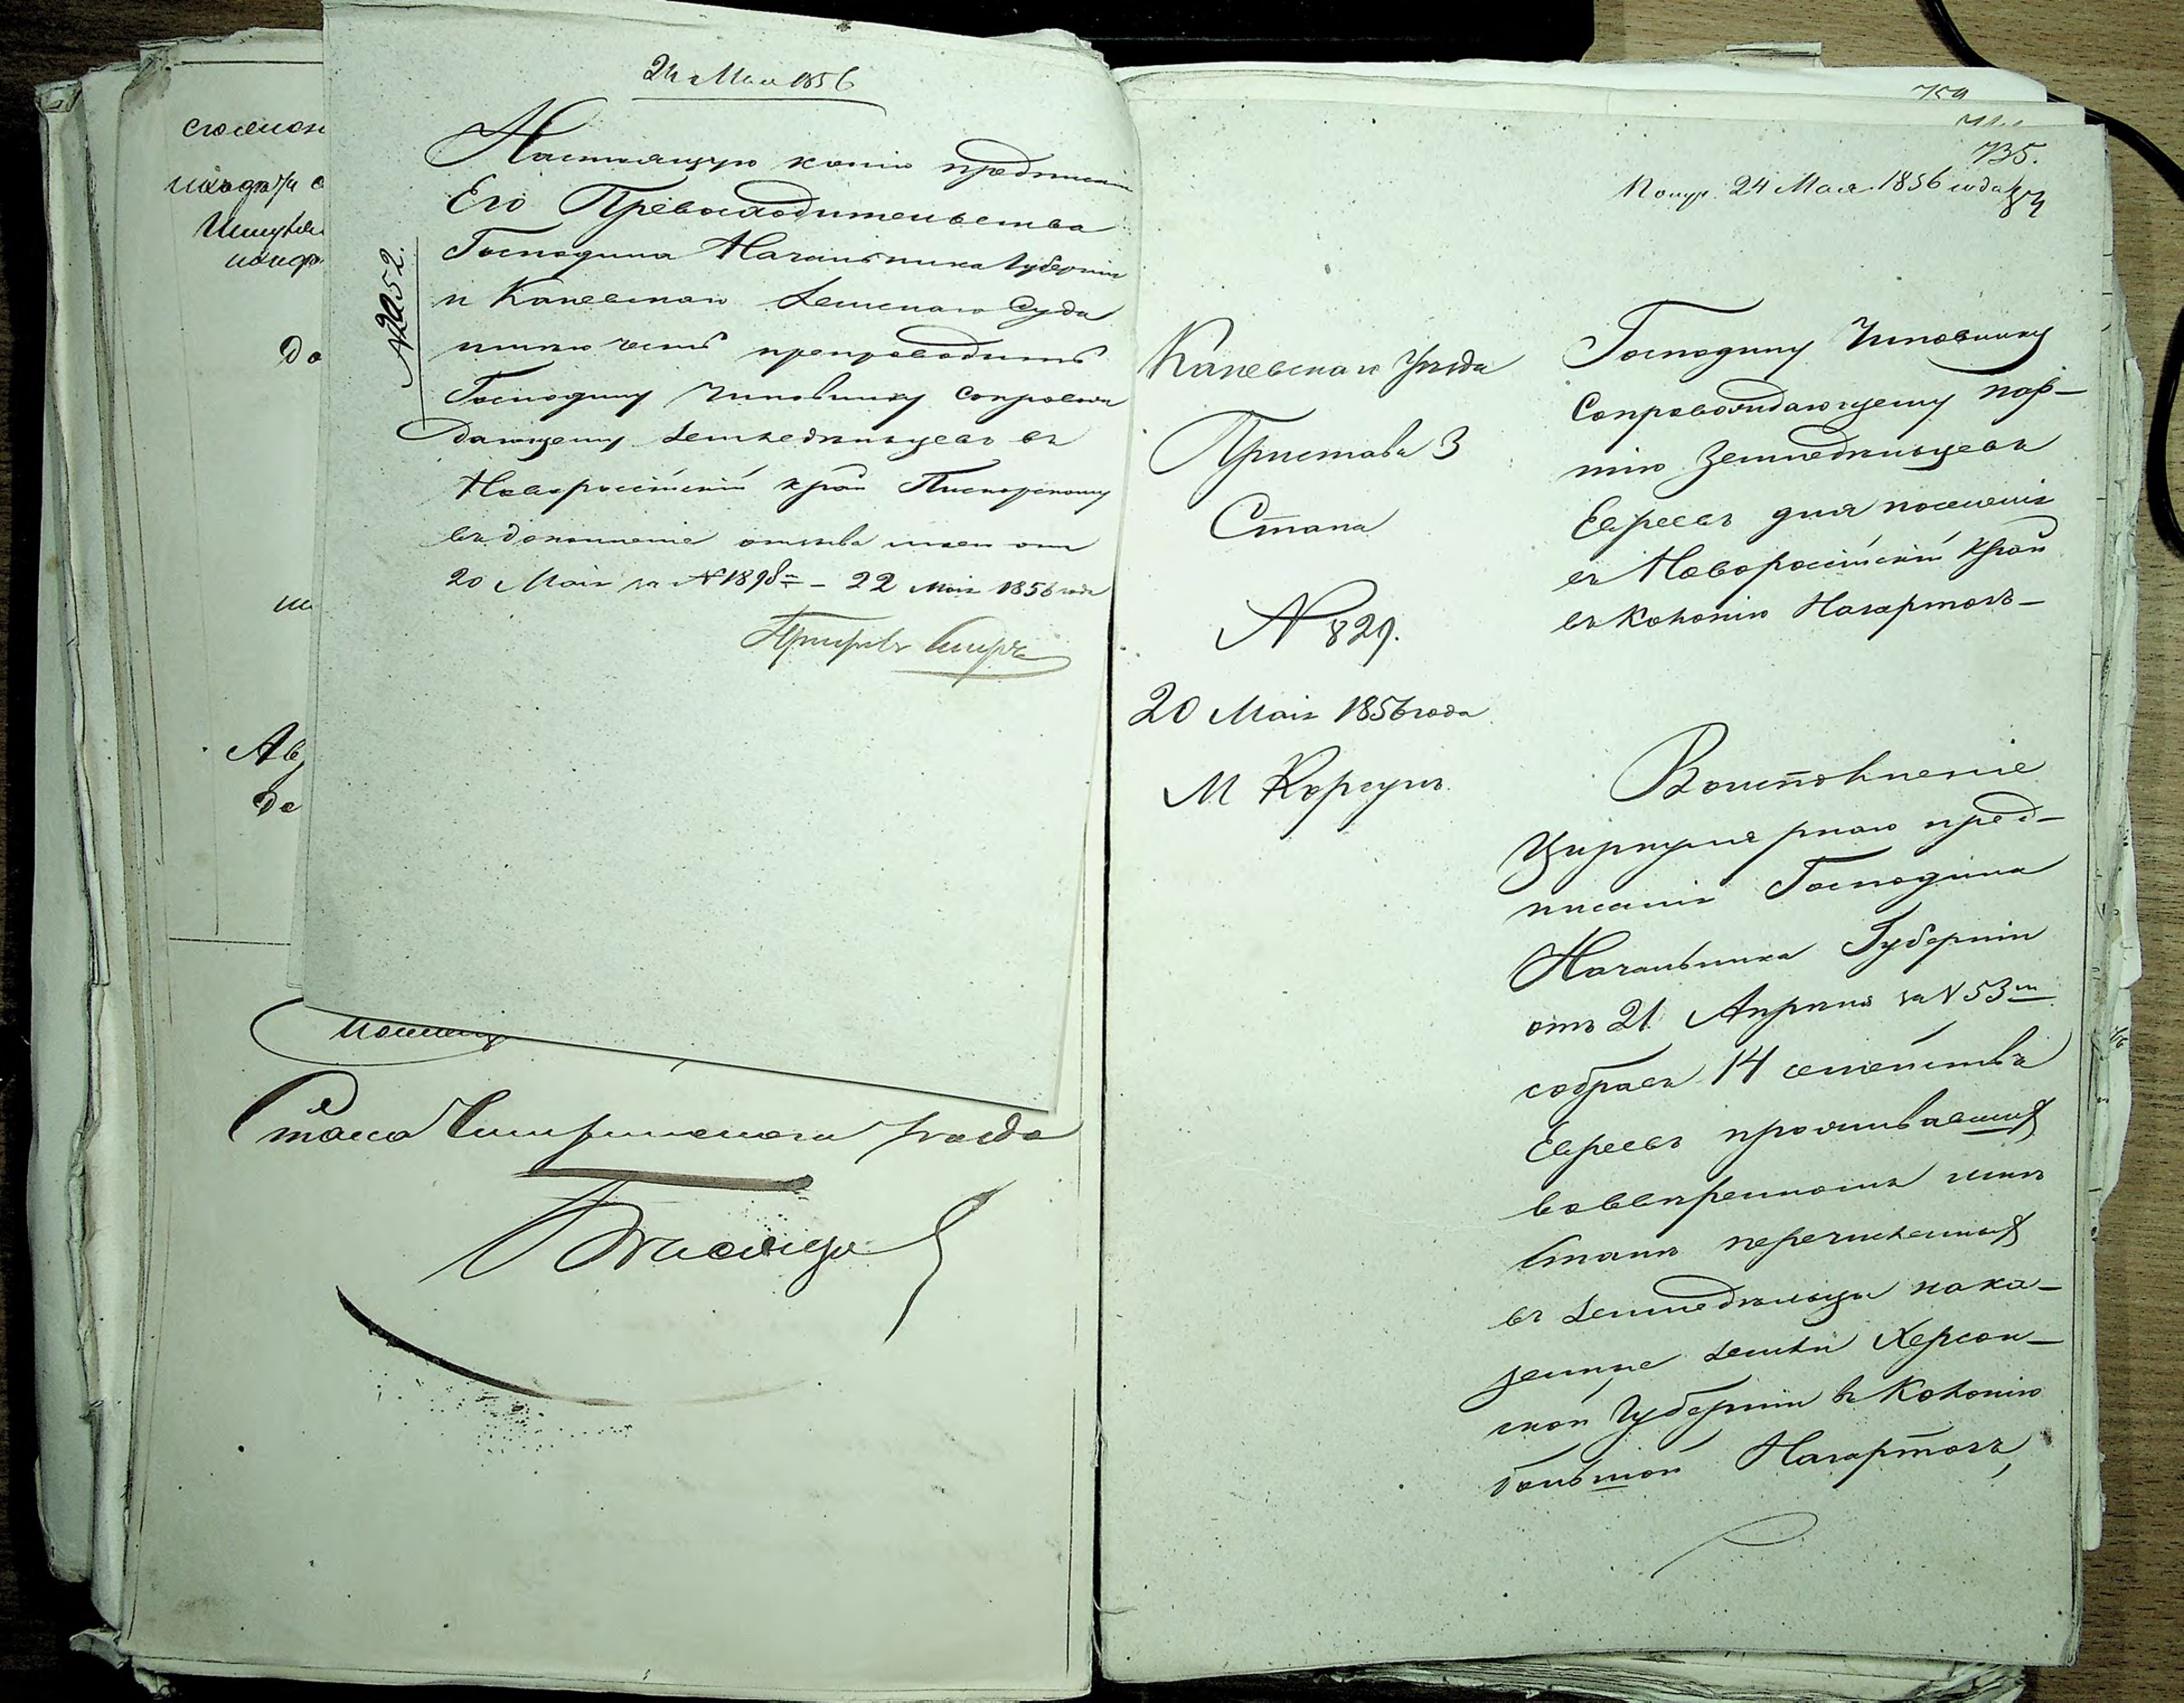 24 Мая 1856
Настоящую копію предписанія
Его Превосходительства
Господина Начальника Губерніи
и Каневскаго Земскаго Суда
имѣю честь препроводить
Господину Чиновнику Сопровож
дающему Земледѣльцевъ въ
Новороссійскій край
въ дополненіе отзыва моего отъ
20 Маія за № 1898 – 22 Маія 1856 года
№ 2052.
Стана уѣзда
735.
Получ. 24 Мая 1856 года
Каневскаго Уѣзда
Пристава 3
Стана
№ 829.
20 Маія 1856 года
М Корсунь.
Господину Чиновнику
Сопровождающему пар–
тію Земледѣльцевъ
Евреевъ для поселенія
въ Новороссійскій край
въ Колонію Нагартовъ–
Воисполненіе
Циркулярнаго пред–
писанія Господина
Начальника Губерніи
отъ 21 Апрѣля за № 53м
собравъ 14 семействъ
Евреевъ проживавшихъ
воввѣренномъ мнѣ
Станѣ перечисленныхъ
въ Земледѣльцы нака–
зенные земли Херсон–
ской Губерніи въ Колонію
большой Нагартовъ,